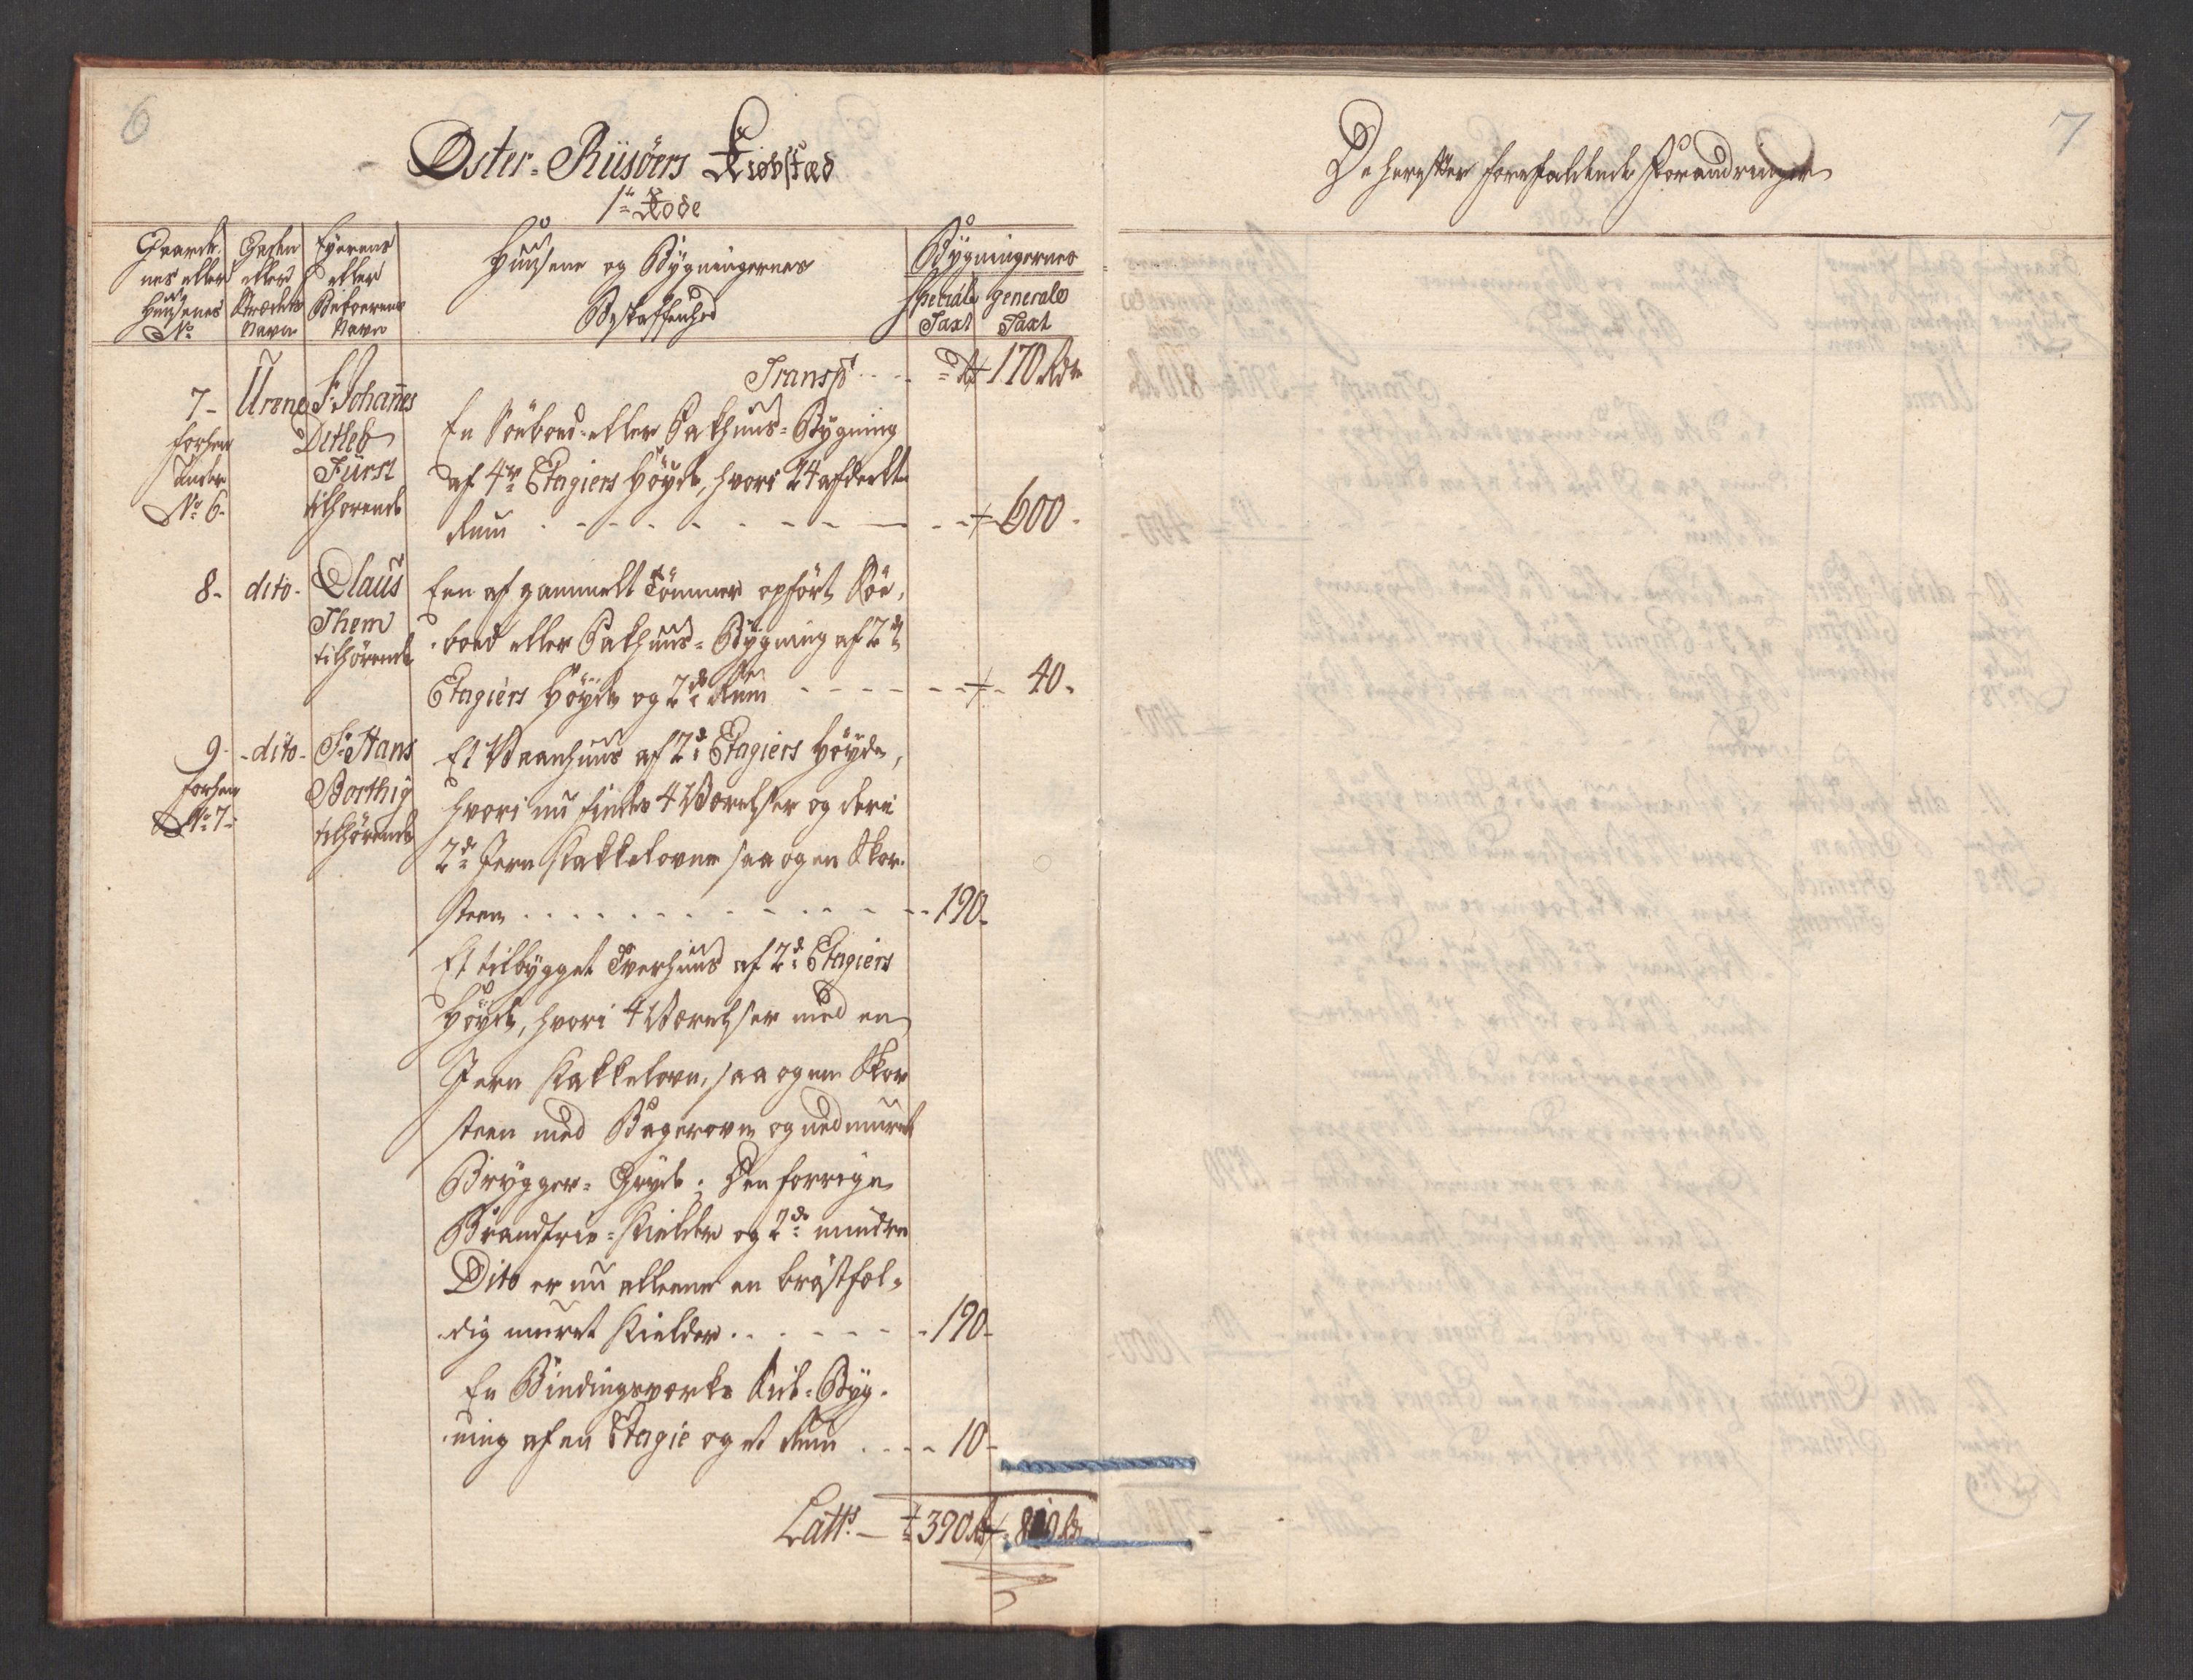 6
Öster-Riisöers Kiøbstæd
1te Rode
Gaarde-
nes eller
Huusenes
No
Gaden
eller
Strædets
Navn
Eyerens
eller
Beboerens
Navn
Huusene og Bÿgningernes
Beskaffenhed
Bÿgningernes
speciale Taxt
generale Taxt
Transpt - - 170 Rdr
7- Urene Sr Johannes
forhen Ditleb
under Fürst
No 6- tilhørende
En Söeboed eller Pakhuus-Bÿgning
af 4re Etagiers Höÿde, hvori 24 afdeelte
Rum - - - - 600-
8- dito- Claus
Them
tilhørende
Een af gammelt Tömmer opfört Söe-
boed eller Pakhuus-Bÿgning af 2de
Etagiers Höÿde og 2de Rum - - - - 40-
9- dito- Sr Hans
forhen Borthig
No 7- tilhørende
Et Vaanhuus af 2de Etagiers Höÿde,
hvori nu findes 4 Værelser og deri
2de Jern Kakkelovne saa og en Skor-
steen - - - - 190-
Et tilbÿgget Tverhuus af 2de Etagiers
Höÿde, hvori 4 Værelser med en
Jern Kakkelovn, saa og en Skor
steen med Bagerovn og nedmuret
Brÿgger-Grÿde; Den forrige
Brandfrie-Kielder og 2de mindre
Dito er nu alleene en bröstfæl-
dig muret Kielder - - - - 190-
En Bindingsverks Bÿg-
ning af en Etagie og et Rum - - - - 10-
Latts - 390 Rdr 810 Rdr
7
De herefter forefaldende Forandringer